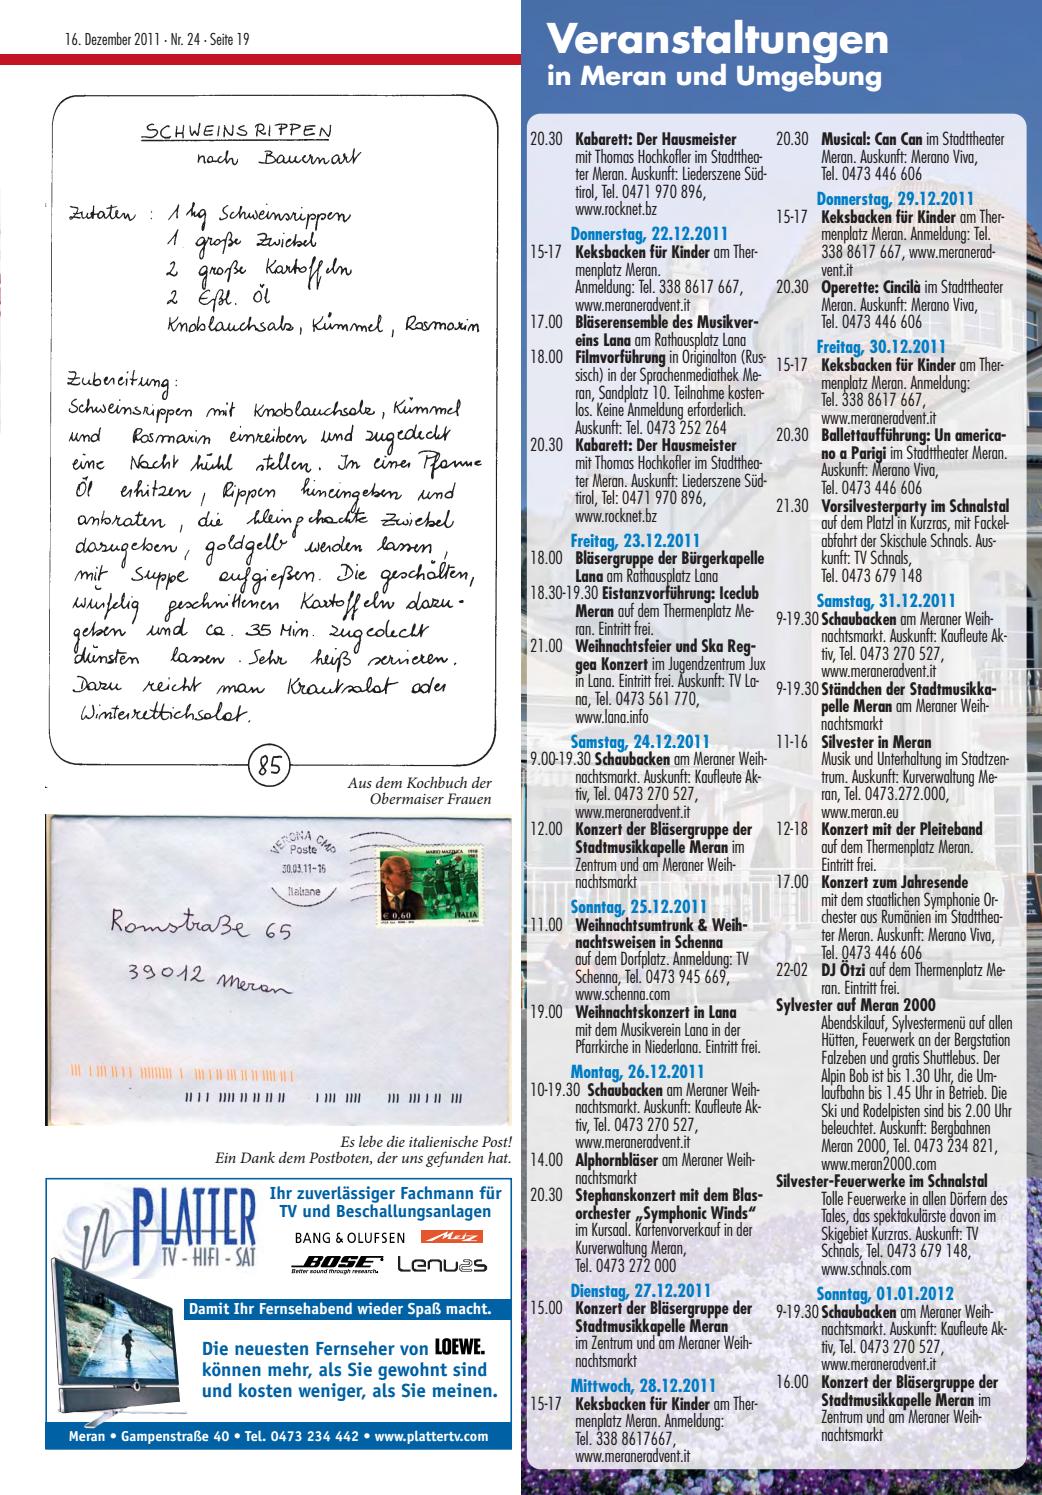 16. Dezember 2011 · Nr. 24 · Seite 19
SCHWEINSRIPPEN
nach Bauernart
Zutaten : 1 kg Schweinsrippen
1 große Zwiebel
2 große Kartoffeln
2 Eßl. Öl
Knoblauchsalz, Kümmel, Rosmarin
Zubereitung:
Schweinsrippen mit Knoblauchsalz, Kümmel
und Rosmarin einreiben und zugedeckt
eine Nacht kühl stellen. In einer Pfanne
Öl erhitzen, Rippen hineingeben und
anbraten, die kleingehackte Zwiebel
dazugeben, goldgelb werden lassen,
mit Suppe aufgießen. Die geschälten,
würfelig geschnittenen Kartoffeln dazu-
geben und ca. 35 Min. zugedeckt
dünsten lassen. Sehr heiß servieren.
Dazu reicht man Krautsalat oder
Winterrettichsalat.
85
Aus dem Kochbuch der
Obermaiser Frauen
VERONA CMP
Poste
30.03.11-16
Italiane
MARIO MAZZUCA 1910
1983
€ 0,60
ITALIA
Romstraße 65
39012 Meran
Es lebe die italienische Post!
Ein Dank dem Postboten, der uns gefunden hat.
PLATTER
TV - HIFI - SAT
Ihr zuverlässiger Fachmann für
TV und Beschallungsanlagen
BANG & OLUFSEN Metz
BOSE Lenuss
Better sound through research.
Damit Ihr Fernsehabend wieder Spaß macht.
Die neuesten Fernseher von LOEWE.
können mehr, als Sie gewohnt sind
und kosten weniger, als Sie meinen.
Meran • Gampenstraße 40 • Tel. 0473 234 442 • www.plattertv.com
Veranstaltungen
in Meran und Umgebung
20.30 Kabarett: Der Hausmeister
mit Thomas Hochkofler im Stadtthea-
ter Meran. Auskunft: Liederszene Süd-
tirol, Tel. 0471 970 896,
www.rocknet.bz
Donnerstag, 22.12.2011
15-17 Keksbacken für Kinder am Ther-
menplatz Meran.
Anmeldung: Tel. 338 8617 667,
www.meraneradvent.it
17.00 Bläserensemble des Musikver-
eins Lana am Rathausplatz Lana
18.00 Filmvorführung in Originalton (Rus-
sisch) in der Sprachenmediathek Me-
ran, Sandplatz 10. Teilnahme kosten-
los. Keine Anmeldung erforderlich.
Auskunft: Tel. 0473 252 264
20.30 Kabarett: Der Hausmeister
mit Thomas Hochkofler im Stadtthea-
ter Meran. Auskunft: Liederszene Süd-
tirol, Tel: 0471 970 896,
www.rocknet.bz
Freitag, 23.12.2011
18.00 Bläsergruppe der Bürgerkapelle
Lana am Rathausplatz Lana
18.30-19.30 Eistanzvorführung: Iceclub
Meran auf dem Thermenplatz Me-
ran. Eintritt frei.
21.00 Weihnachtsfeier und Ska Reg-
gea Konzert im Jugendzentrum Jux
in Lana. Eintritt frei. Auskunft: TV La-
na, Tel. 0473 561 770,
www.lana.info
Samstag, 24.12.2011
9.00-19.30 Schaubacken am Meraner Weih-
nachtsmarkt. Auskunft: Kaufleute Ak-
tiv, Tel. 0473 270 527,
www.meraneradvent.it
12.00 Konzert der Bläsergruppe der
Stadtmusikkapelle Meran im
Zentrum und am Meraner Weih-
nachtsmarkt
Sonntag, 25.12.2011
11.00 Weihnachtsumtrunk & Weih-
nachtsweisen in Schenna
auf dem Dorfplatz. Anmeldung: TV
Schenna, Tel. 0473 945 669,
www.schenna.com
19.00 Weihnachtskonzert in Lana
mit dem Musikverein Lana in der
Pfarrkirche in Niederlana. Eintritt frei.
Montag, 26.12.2011
10-19.30 Schaubacken am Meraner Weih-
nachtsmarkt. Auskunft: Kaufleute Ak-
tiv, Tel. 0473 270 527,
www.meraneradvent.it
14.00 Alphornbläser am Meraner Weih-
nachtsmarkt
20.30 Stephanskonzert mit dem Blas-
orchester „Symphonic Winds“
im Kursaal. Kartenvorverkauf in der
Kurverwaltung Meran,
Tel. 0473 272 000
Dienstag, 27.12.2011
15.00 Konzert der Bläsergruppe der
Stadtmusikkapelle Meran
im Zentrum und am Meraner Weih-
nachtsmarkt
Mittwoch, 28.12.2011
15-17 Keksbacken für Kinder am Ther-
menplatz Meran. Anmeldung:
Tel. 338 8617667,
www.meraneradvent.it
20.30 Musical: Can Can im Stadttheater
Meran. Auskunft: Merano Viva,
Tel. 0473 446 606
Donnerstag, 29.12.2011
15-17 Keksbacken für Kinder am Ther-
menplatz Meran. Anmeldung: Tel.
338 8617 667, www.meranerad-
vent.it
20.30 Operette: Cincilà im Stadttheater
Meran. Auskunft: Merano Viva,
Tel. 0473 446 606
Freitag, 30.12.2011
15-17 Keksbacken für Kinder am Ther-
menplatz Meran. Anmeldung:
Tel. 338 8617 667,
www.meraneradvent.it
20.30 Ballettaufführung: Un america-
no a Parigi im Stadttheater Meran.
Auskunft: Merano Viva,
Tel. 0473 446 606
21.30 Vorsilvesterparty im Schnalstal
auf dem Platzl in Kurzras, mit Fackel-
abfahrt der Skischule Schnals. Aus-
kunft: TV Schnals,
Tel. 0473 679 148
Samstag, 31.12.2011
9-19.30 Schaubacken am Meraner Weih-
nachtsmarkt. Auskunft: Kaufleute Ak-
tiv, Tel. 0473 270 527,
www.meraneradvent.it
9-19.30 Ständchen der Stadtmusikka-
pelle Meran am Meraner Weih-
nachtsmarkt
11-16 Silvester in Meran
Musik und Unterhaltung im Stadtzen-
trum. Auskunft: Kurverwaltung Me-
ran, Tel. 0473.272.000,
www.meran.eu
12-18 Konzert mit der Pleiteband
auf dem Thermenplatz Meran.
Eintritt frei.
17.00 Konzert zum Jahresende
mit dem staatlichen Symphonie Or-
chester aus Rumänien im Stadtthea-
ter Meran. Auskunft: Merano Viva,
Tel. 0473 446 606
22-02 DJ Ötzi auf dem Thermenplatz Me-
ran. Eintritt frei.
Sylvester auf Meran 2000
Abendskilauf, Sylvestermenü auf allen
Hütten, Feuerwerk an der Bergstation
Falzeben und gratis Shuttlebus. Der
Alpin Bob ist bis 1.30 Uhr, die Um-
laufbahn bis 1.45 Uhr in Betrieb. Die
Ski und Rodelpisten sind bis 2.00 Uhr
beleuchtet. Auskunft: Bergbahnen
Meran 2000, Tel. 0473 234 821,
www.meran2000.com
Silvester-Feuerwerke im Schnalstal
Tolle Feuerwerke in allen Dörfern des
Tales, das spektakulärste davon im
Skigebiet Kurzras. Auskunft: TV
Schnals, Tel. 0473 679 148,
www.schnals.com
Sonntag, 01.01.2012
9-19.30 Schaubacken am Meraner Weih-
nachtsmarkt. Auskunft: Kaufleute Ak-
tiv, Tel. 0473 270 527,
www.meraneradvent.it
16.00 Konzert der Bläsergruppe der
Stadtmusikkapelle Meran im
Zentrum und am Meraner Weih-
nachtsmarkt